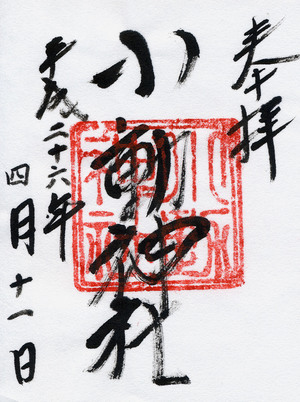 奉拝
小動神社
平成二十六年
四月十一日